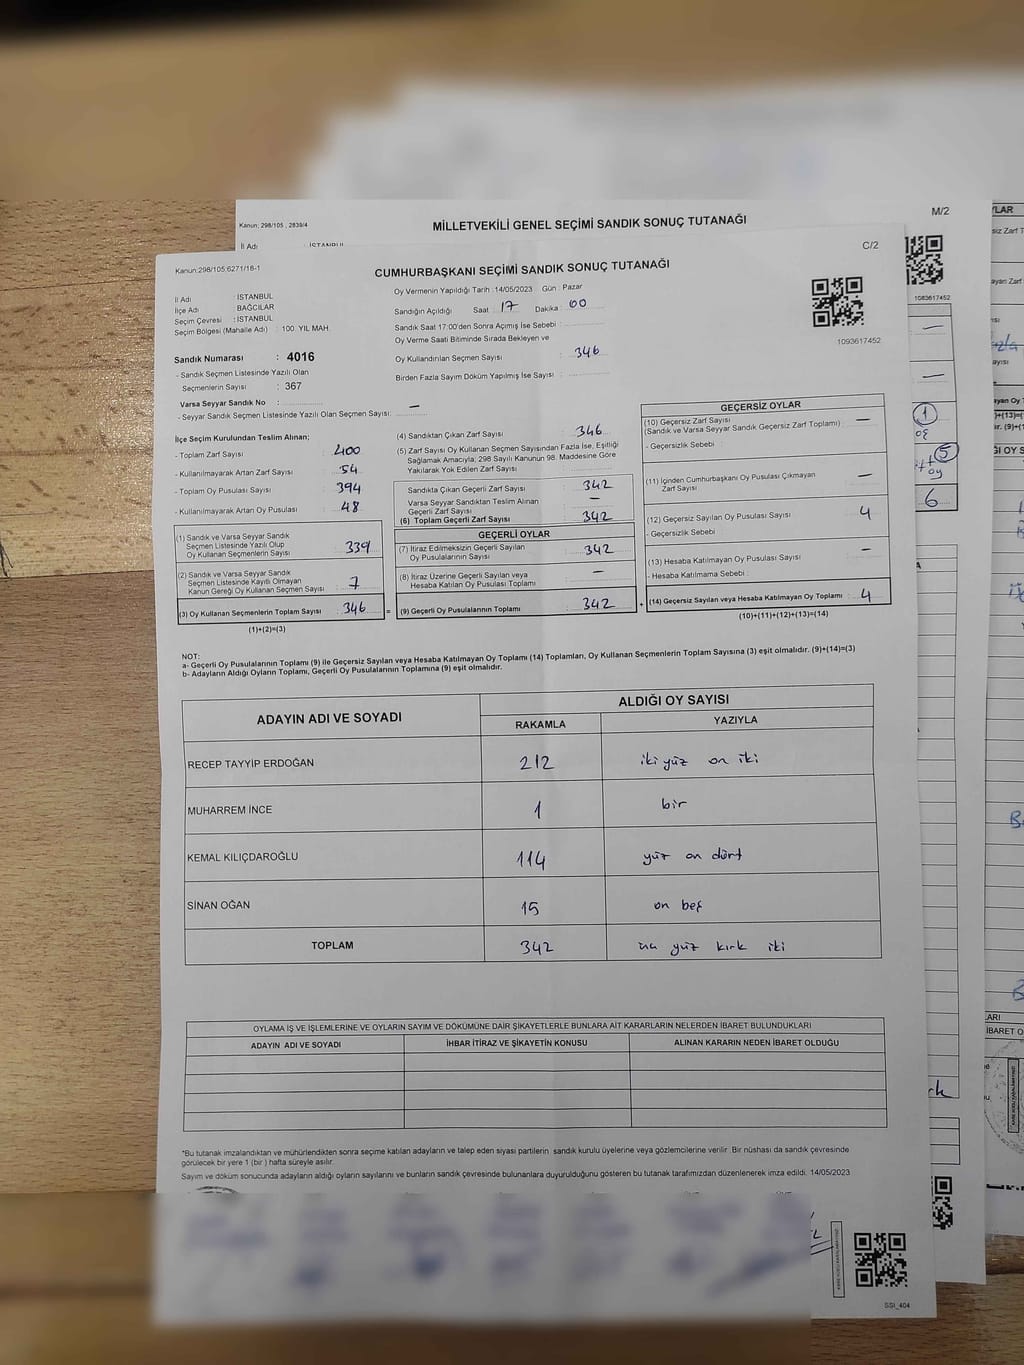 Kanun; 298/105 , 2839/4
MİLLETVEKİLİ GENEL SEÇİMİ SANDIK SONUÇ TUTANAĞI
M/2
İl Adı : İSTANBUL
1083617452
Kanun:298/105;6271/16-1
CUMHURBAŞKANI SEÇİMİ SANDIK SONUÇ TUTANAĞI
C/2
İl Adı : İSTANBUL
İlçe Adı : BAĞCILAR
Seçim Çevresi : İSTANBUL
Seçim Bölgesi (Mahalle Adı) : 100. YIL MAH.
Sandık Numarası : 4016
- Sandık Seçmen Listesinde Yazılı Olan
Seçmenlerin Sayısı : 367
Varsa Seyyar Sandık No :
- Seyyar Sandık Seçmen Listesinde Yazılı Olan Seçmen Sayısı: —
Oy Vermenin Yapıldığı Tarih :14/05/2023 Gün : Pazar
Sandığın Açıldığı Saat : 17 Dakika : 00
Sandık Saat 17:00'den Sonra Açımış İse Sebebi :
Oy Verme Saati Bitiminde Sırada Bekleyen ve
Oy Kullandırılan Seçmen Sayısı : 346
Birden Fazla Sayım Döküm Yapılmış İse Sayısı :
1093617452
İlçe Seçim Kurulundan Teslim Alınan;
- Toplam Zarf Sayısı : 400
- Kullanılmayarak Artan Zarf Sayısı : 54
- Toplam Oy Pusulası Sayısı : 394
- Kullanılmayarak Artan Oy Pusulası : 48
(1) Sandık ve Varsa Seyyar Sandık
Seçmen Listesinde Yazılı Olup
Oy Kullanan Seçmenlerin Sayısı : 339
(2) Sandık ve Varsa Seyyar Sandık
Seçmen Listesinde Kayıtlı Olmayan
Kanun Gereği Oy Kullanan Seçmen Sayısı : 7
(3) Oy Kullanan Seçmenlerin Toplam Sayısı : 346 =
(1)+(2)=(3)
(4) Sandıktan Çıkan Zarf Sayısı : 346
(5) Zarf Sayısı Oy Kullanan Seçmen Sayısından Fazla İse, Eşitliği
Sağlamak Amacıyla; 298 Sayılı Kanunun 98. Maddesine Göre
Yakılarak Yok Edilen Zarf Sayısı :
Sandıkta Çıkan Geçerli Zarf Sayısı : 342
Varsa Seyyar Sandıktan Teslim Alınan
Geçerli Zarf Sayısı : —
(6) Toplam Geçerli Zarf Sayısı : 342
GEÇERLİ OYLAR
(7) İtiraz Edilmeksizin Geçerli Sayılan
Oy Pusulalarının Sayısı : 342
(8) İtiraz Üzerine Geçerli Sayılan veya
Hesaba Katılan Oy Pusulası Toplamı : —
(9) Geçerli Oy Pusulalarının Toplamı : 342 +
GEÇERSİZ OYLAR
(10) Geçersiz Zarf Sayısı : —
(Sandık ve Varsa Seyyar Sandık Geçersiz Zarf Toplamı)
- Geçersizlik Sebebi :
(11) İçinden Cumhurbaşkanı Oy Pusulası Çıkmayan
Zarf Sayısı : —
(12) Geçersiz Sayılan Oy Pusulası Sayısı : 4
- Geçersizlik Sebebi :
(13) Hesaba Katılmayan Oy Pusulası Sayısı : —
- Hesaba Katılmama Sebebi :
(14) Geçersiz Sayılan veya Hesaba Katılmayan Oy Toplamı : 4
(10)+(11)+(12)+(13)=(14)
NOT:
a- Geçerli Oy Pusulalarının Toplamı (9) ile Geçersiz Sayılan veya Hesaba Katılmayan Oy Toplamı (14) Toplamları, Oy Kullanan Seçmenlerin Toplam Sayısına (3) eşit olmalıdır. (9)+(14)=(3)
b- Adayların Aldığı Oyların Toplamı, Geçerli Oy Pusulalarının Toplamına (9) eşit olmalıdır.
ADAYIN ADI VE SOYADI
ALDIĞI OY SAYISI
RAKAMLA YAZIYLA
RECEP TAYYİP ERDOĞAN 212 iki yüz on iki
MUHARREM İNCE 1 bir
KEMAL KILIÇDAROĞLU 114 yüz on dört
SİNAN OĞAN 15 on beş
TOPLAM 342 üç yüz kırk iki
OYLAMA İŞ VE İŞLEMLERİNE VE OYLARIN SAYIM VE DÖKÜMÜNE DAİR ŞİKAYETLERLE BUNLARA AİT KARARLARIN NELERDEN İBARET BULUNDUKLARI
ADAYIN ADI VE SOYADI İHBAR İTİRAZ VE ŞİKAYETİN KONUSU ALINAN KARARIN NEDEN İBARET OLDUĞU
*Bu tutanak imzalandıktan ve mühürlendikten sonra seçime katılan adayların ve talep eden siyasi partilerin sandık kurulu üyelerine veya gözlemcilerine verilir. Bir nüshası da sandık çevresinde
görülecek bir yere 1 (bir ) hafta süreyle asılır.
Sayım ve döküm sonucunda adayların aldığı oyların sayılarını ve bunların sandık çevresinde bulunanlara duyurulduğunu gösteren bu tutanak tarafımızdan düzenlenerek imza edildi. 14/05/2023
SSI_404